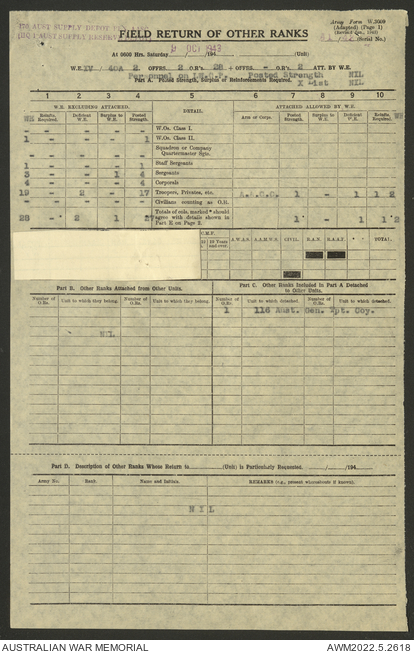 Army Form W.3009
(Adapted) (Page 1)
(Revised Dec., 1942)
(Serial No.)
FIELD RETURN OF OTHER RANKS
At 0600 Hrs. Saturday OCT 1943 /194 (Unit)
W.E. IV / 40A 2 OFFRS. 2 O'R's. 28 + - OFFRS. - O.R's 2 ATT. BY W.E.
Personnel on Posted Strength NIL
Part A. Posted Strength, Surplus or Reinforcements Required. X-list NIL
1 2 3 4 5 6 7 8 9 10
W.E. EXCLUDING ATTACHED. DETAIL. ATTACHED ALLOWED BY W.E.
WE Reinfts. Required. Deficient W.E. Surplus to W.E. Posted Strength. Arm or Corps. Posted Strength. Surplus to W.E. Deficient W.E. Reinfts. Required. WE
- - - - - W.Os. Class I.
1 - - - 1 W.Os. Class II.
- - - - - Squadron or Company
Quartermaster Sgts.
1 - - - 1 Staff Sergeants
3 - - 1 4 Sergeants
4 - - - 4 Corporals
19 - 2 - 17 Troopers, Privates, etc. 1 - 1 1 2
- - - - - Civilians counting as O.R.
28 - 2 1 27 Totals of cols. marked * should
agree with details shown in
Part E on Page 2. 1 - 1 1 2
A.W.A.S. A.A.M.W.S. CIVIL. R.A.N. R.A.A.F. TOTAL.
Part B. Other Ranks Attached from Other Units.
Part C. Other Ranks Included in Part A Detached
to Other Units.
Number of O.Rs. Unit to which they belong. Number of O.Rs. Unit to which they belong. Number of O.Rs. Unit to which detached. Number of O.Rs. Unit to which detached.
1 116 Aust. Gen. Tpt. Coy.
NIL
Part D. Description of Other Ranks Whose Return to (Unit) is Particularly Requested. / /194
Army No. Rank. Name and Initials. REMARKS (e.g., present whereabouts if known).
NIL
AUSTRALIAN WAR MEMORIAL AWM2022.5.2618